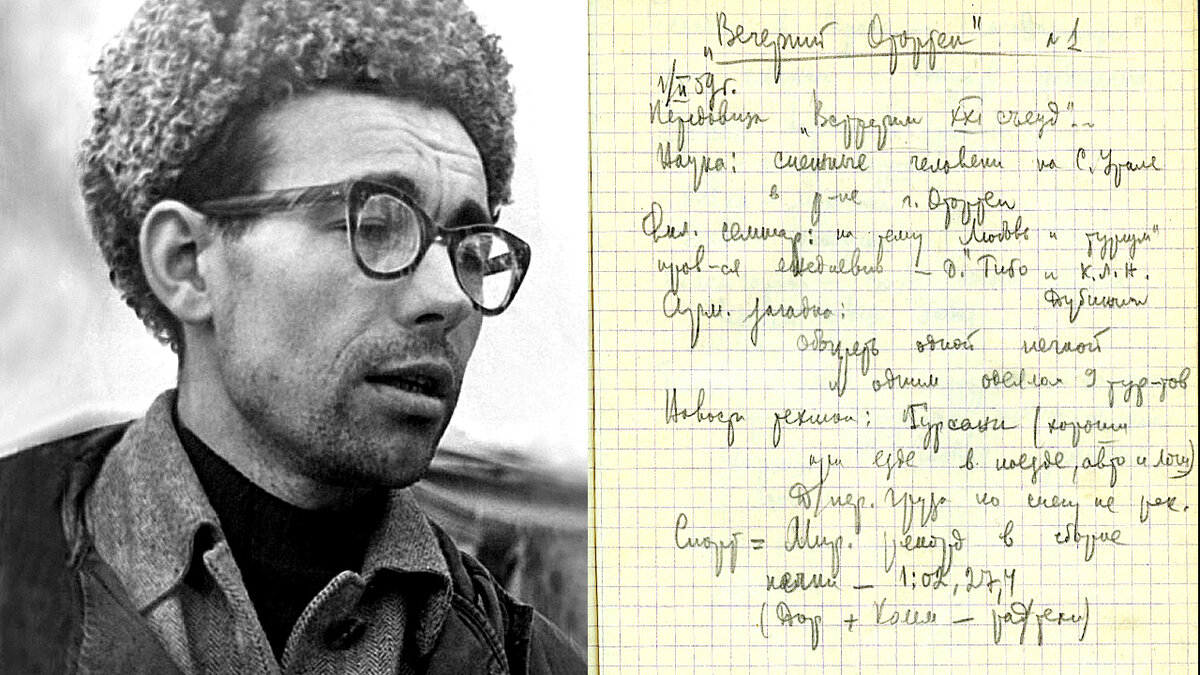 „Вечерний Отортен" № 1
1/II 59г.
Передовица „Встретим XXI съезд"
Наука: снежные человеки на С. Урале
в р-не г. Отортен
Фил. семинар: на тему „Любовь и туризм"
пров-ся ежедневно — D. Тибо и К.Л.Н.
Дубинина
Арм. загадка:
Обогреть одной печкой
и одним одеялом 9 тур-тов
Новости техники: Турсани (хороши
при езде в поезде, авто и лош)
Д/пер. груза по снегу не рек.
Спорт = Мир. рекорд в сборке
печки — 1:02, 27,4
(Дор + Колм — радтехи)